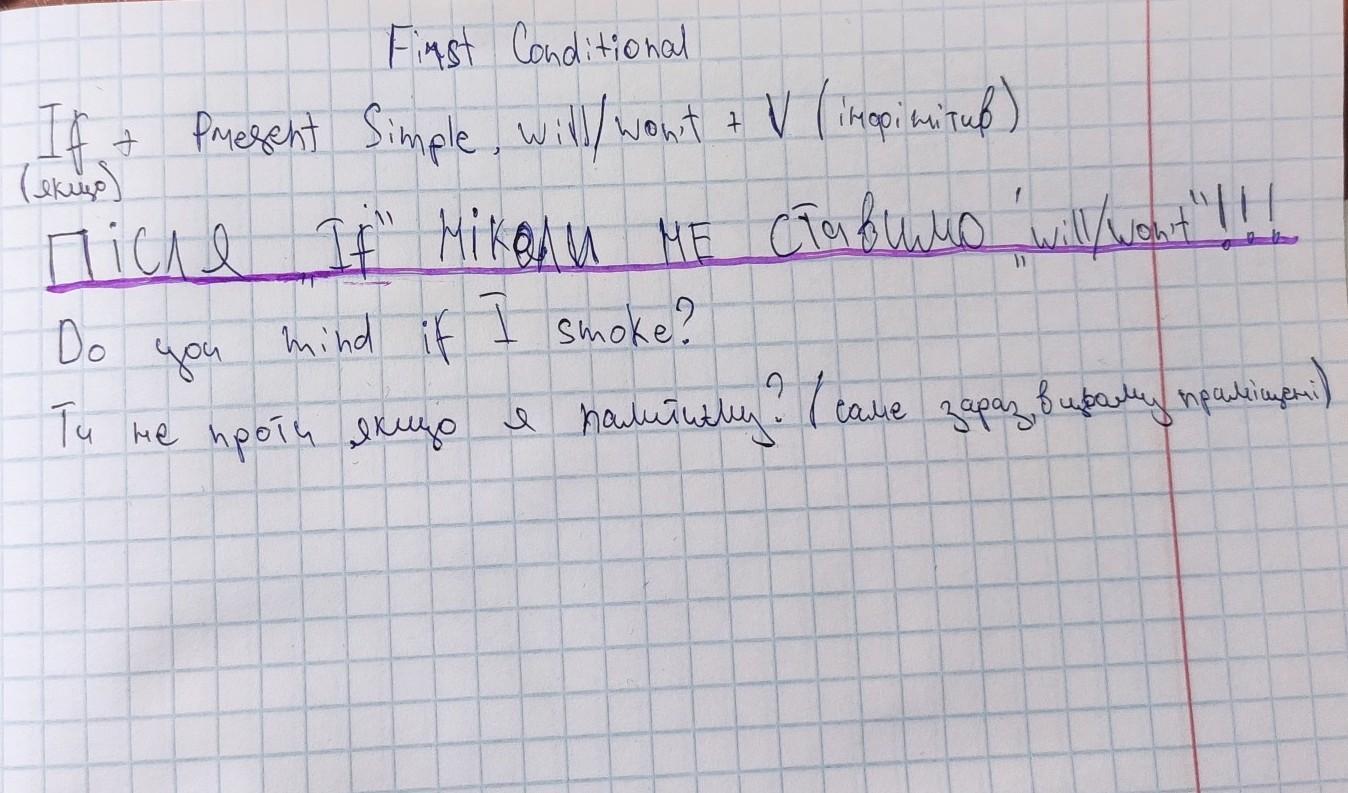 First Conditional
If + Present Simple, will/won't + V (інфінітив)
(якщо)
Після „If" ніколи НЕ ставимо „will/won't"!!!
Do you mind if I smoke?
Ти не проти якщо я палитиму? (саме зараз, в цьому приміщені)